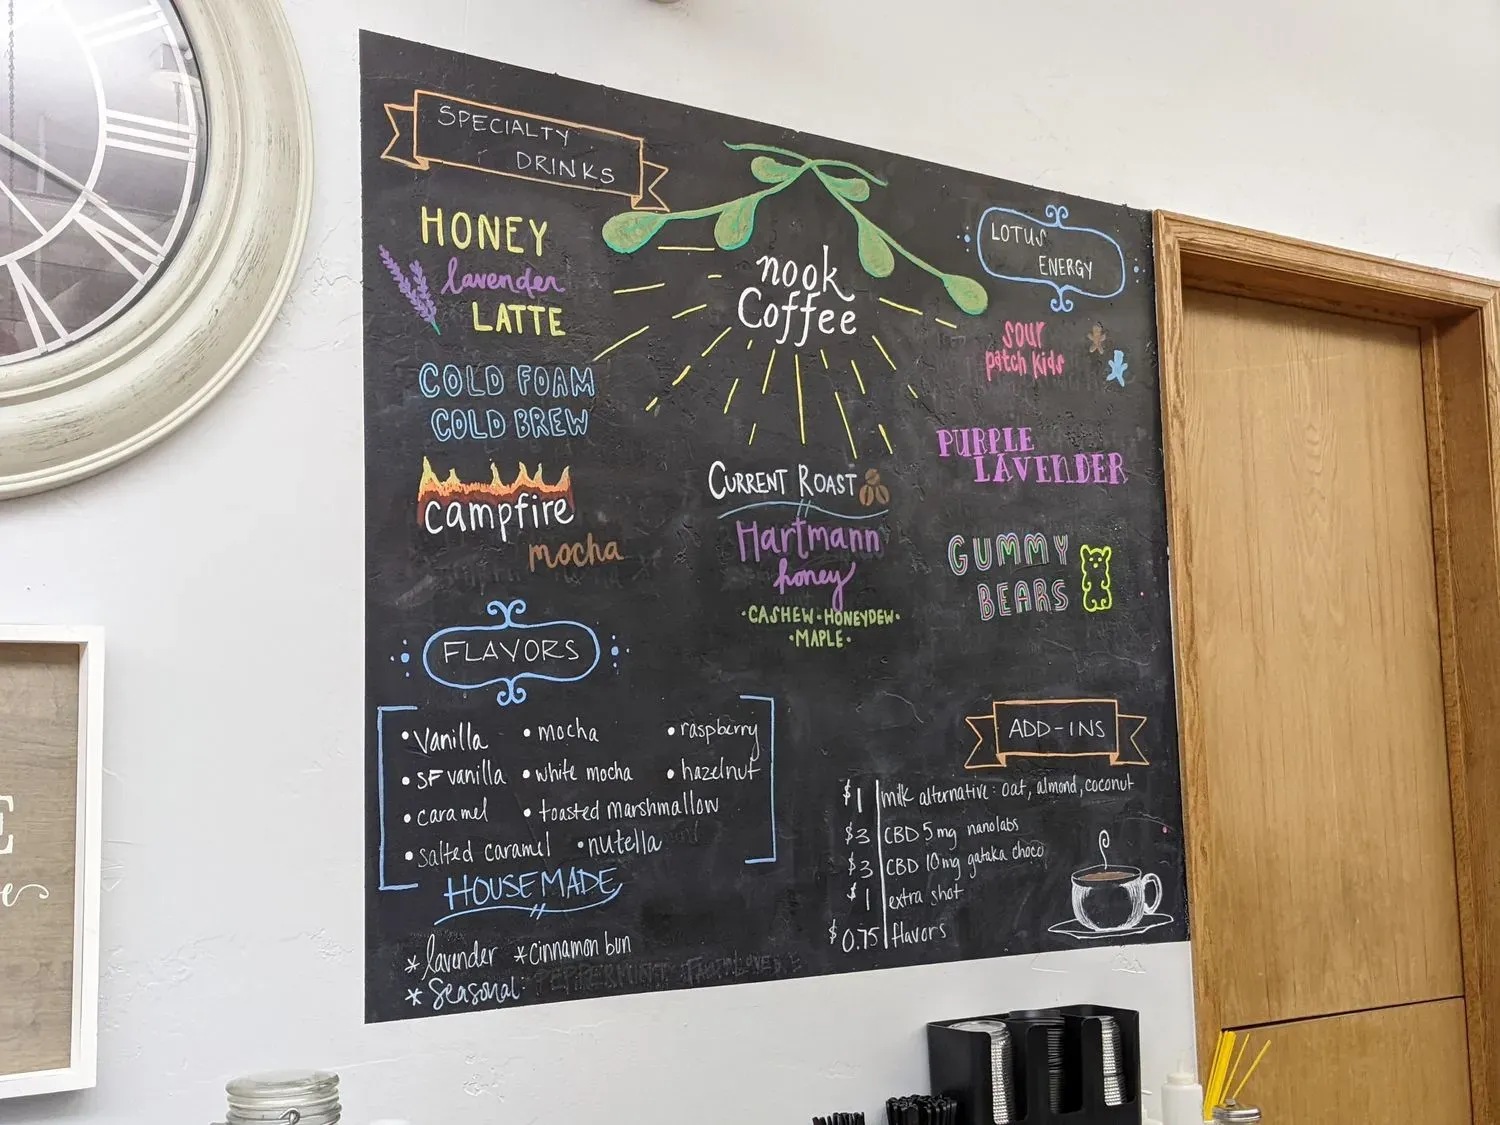 SPECIALTY
DRINKS
HONEY
lavender
LATTE
COLD FOAM
COLD BREW
campfire
mocha
nook
Coffee
CURRENT ROAST
Hartmann
honey
·CASHEW·HONEYDEW·
·MAPLE·
LOTUS
ENERGY
sour
patch kids
PURPLE
LAVENDER
GUMMY
BEARS
FLAVORS
•vanilla •mocha •raspberry
•SF vanilla •white mocha •hazelnut
•caramel •toasted marshmallow
•salted caramel •nutella
HOUSEMADE
*lavender *cinnamon bun
*Seasonal: PEPPERMINT
ADD-INS
$1 milk alternative: oat, almond, coconut
$3 CBD 5mg nanolabs
$3 CBD 10mg gataka choco
$1 extra shot
$0.75 flavors
E